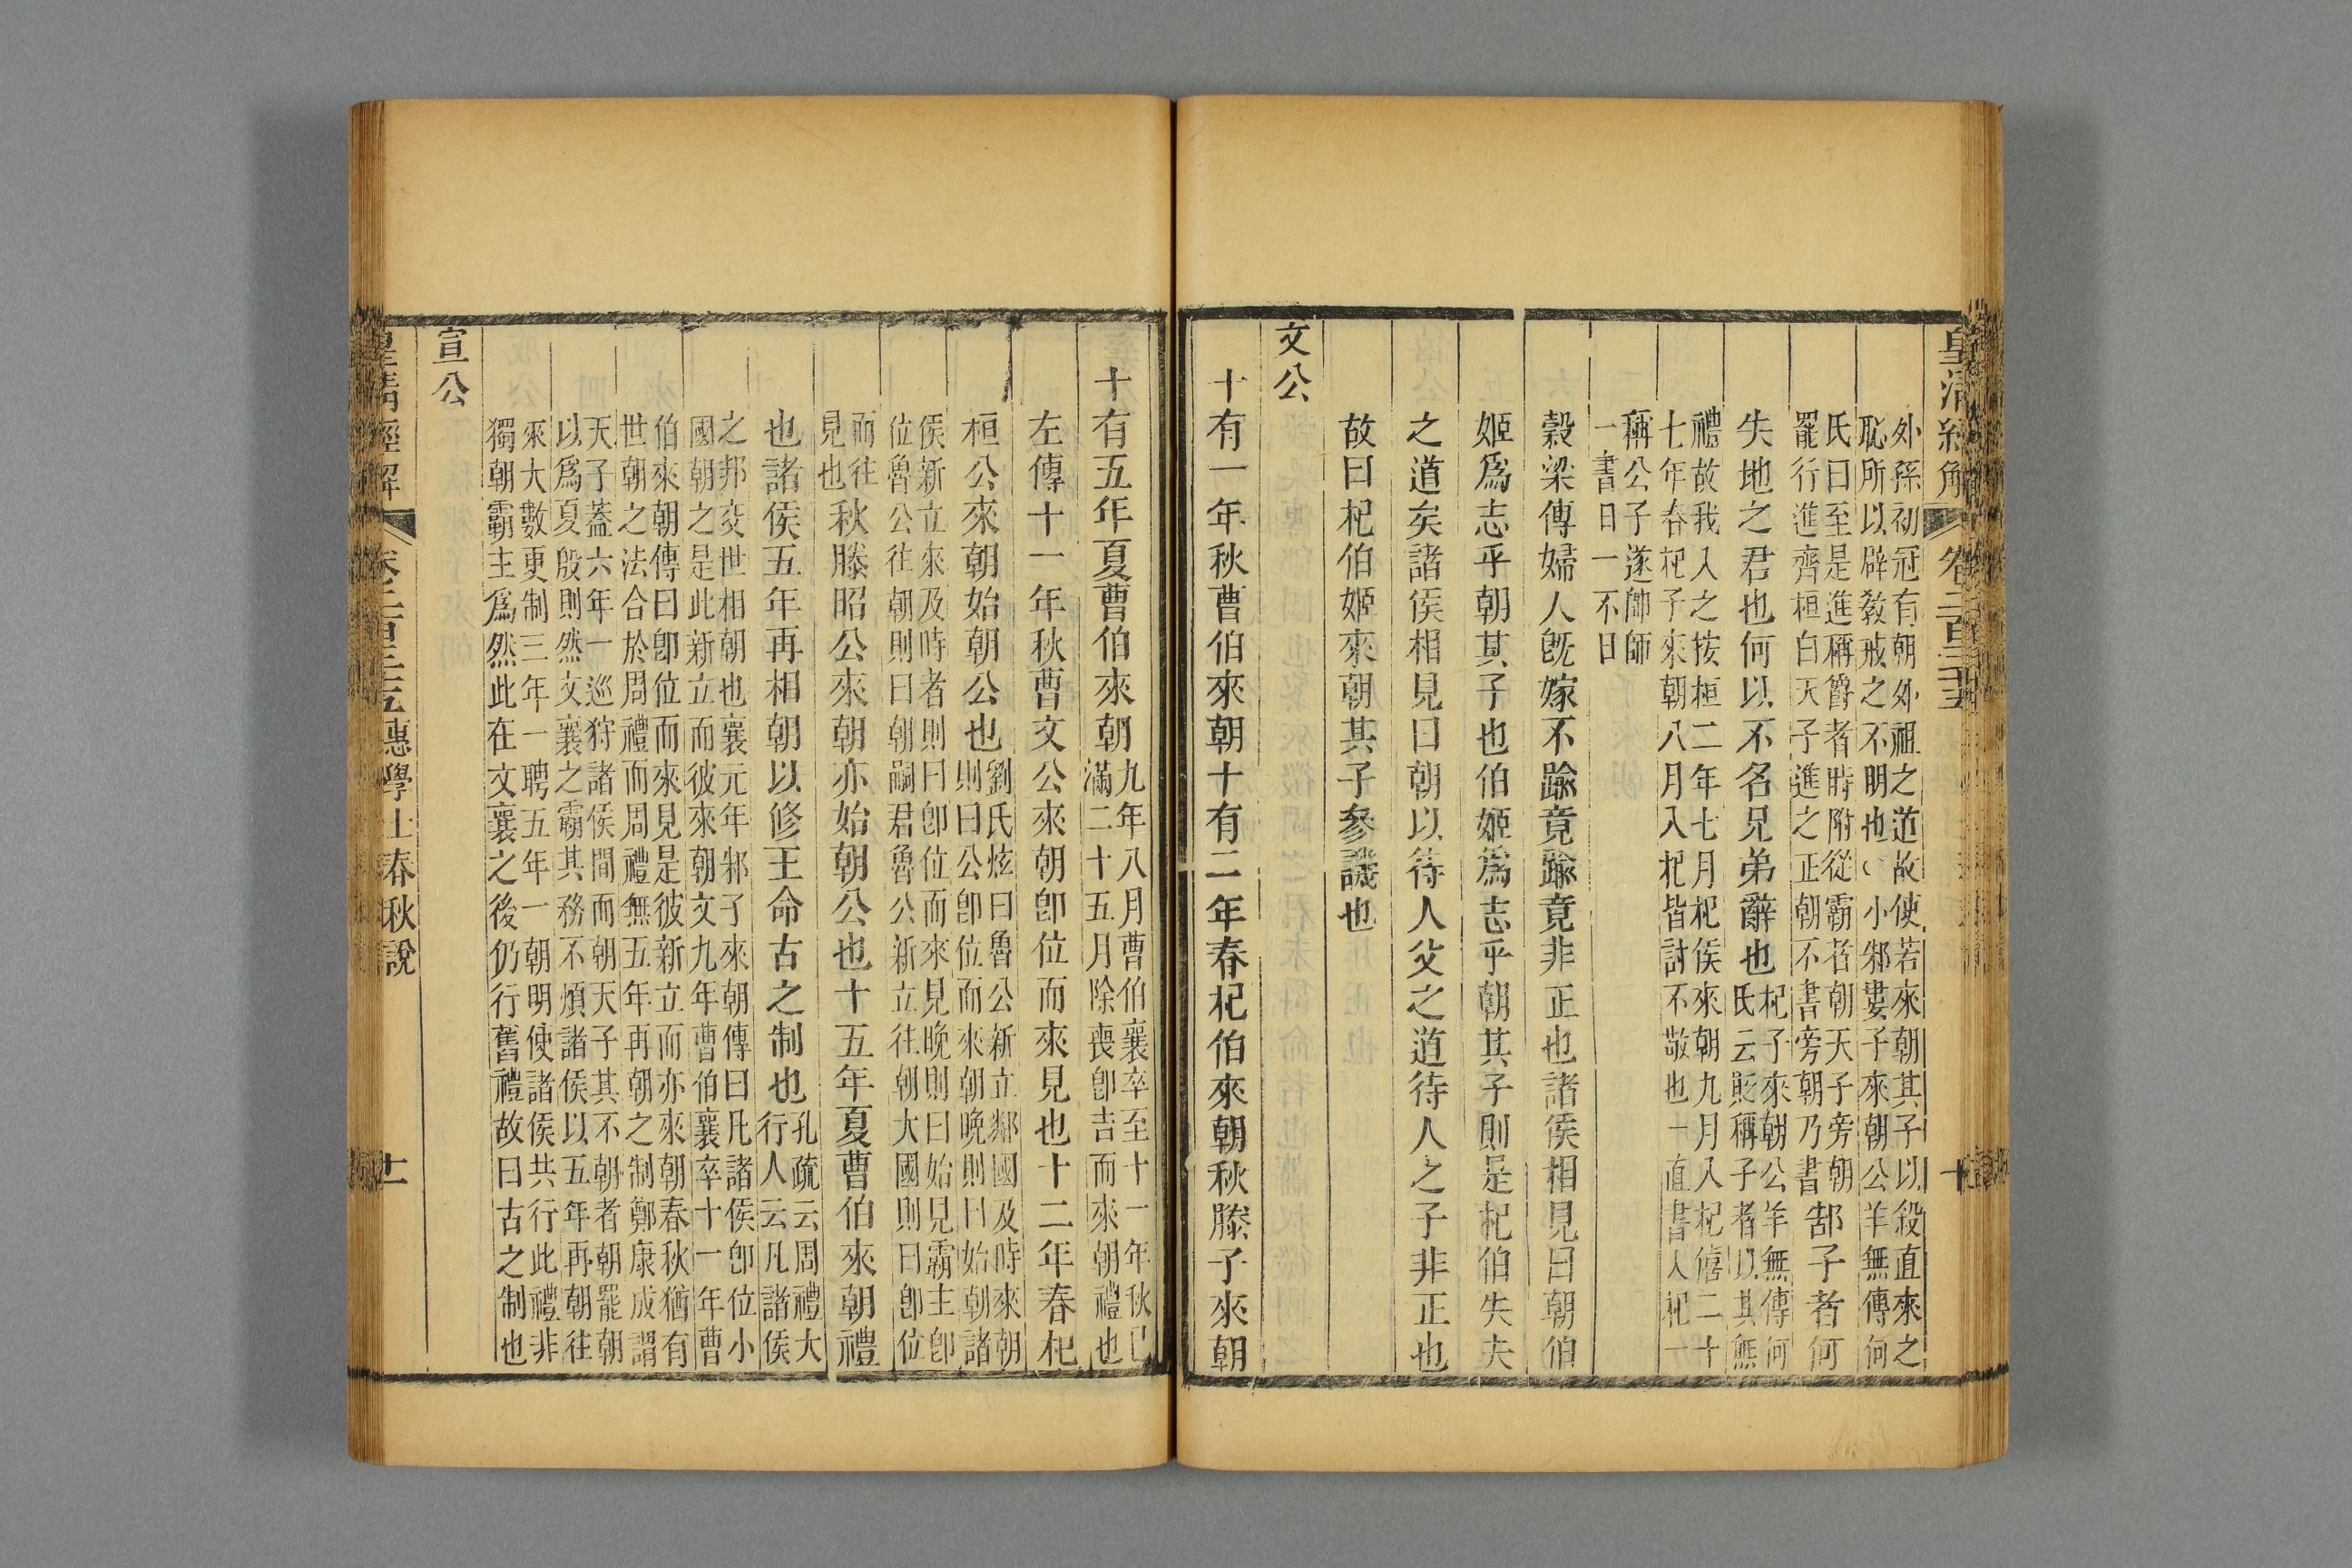 皇清經解 卷二百三十五 十
外孫初冠有朝外祖之道故使若來朝其子以殺直來之
恥所以辟教戒之不明也○小邾婁子來朝公羊無傳何
氏曰至是進稱爵者時附從霸者朝天子旁朝
罷行進齊桓白天子進之正朝不書旁朝乃書
郜子者何
失地之君也何以不名兄弟辭也
杞子來朝公羊無傳何
氏云貶稱子者以其無
禮故我入之按桓二年七月杞侯來朝九月入杞僖二十
七年春杞子來朝八月入杞皆討不敬也一直書入杞一
稱公子遂帥師
一書日一不日
穀梁傳婦人既嫁不踰竟踰竟非正也諸侯相見曰朝伯
姬爲志乎朝其子也伯姬爲志乎朝其子則是杞伯失夫
之道矣諸侯相見曰朝以待人父之道待人之子非正也
故曰杞伯姬來朝其子參譏也
文公
十有一年秋曹伯來朝十有二年春杞伯來朝秋滕子來朝
十有五年夏曹伯來朝
九年八月曹伯襄卒至十一年秋已
滿二十五月除喪卽吉而來朝禮也
左傳十一年秋曹文公來朝卽位而來見也十二年春杞
桓公來朝始朝公也
劉氏炫曰魯公新立鄰國及時來朝
則曰公卽位而來朝晚則曰始朝諸
侯新立來及時者則曰卽位而來見晚則曰始見霸主卽
位魯公往朝則曰朝嗣君魯公新立往朝大國則曰卽位
而往
見也
秋滕昭公來朝亦始朝公也十五年夏曹伯來朝禮
也諸侯五年再相朝以修王命古之制也
孔疏云周禮大
行人云凡諸侯
之邦交世相朝也襄元年邾子來朝傳曰凡諸侯卽位小
國朝之是此新立而彼來朝文九年曹伯襄卒十一年曹
伯來朝傳曰卽位而來見是彼新立而亦來朝春秋猶有
世朝之法合於周禮而周禮無五年再朝之制鄭康成謂
天子蓋六年一巡狩諸侯間而朝天子其不朝者朝罷朝
以爲夏殷則然文襄之霸其務不煩諸侯以五年再朝往
來大數更制三年一聘五年一朝明使諸侯共行此禮非
獨朝霸主爲然此在文襄之後仍行舊禮故曰古之制也
宣公
皇清經解 卷二百三十五 惠學士春秋說 十一